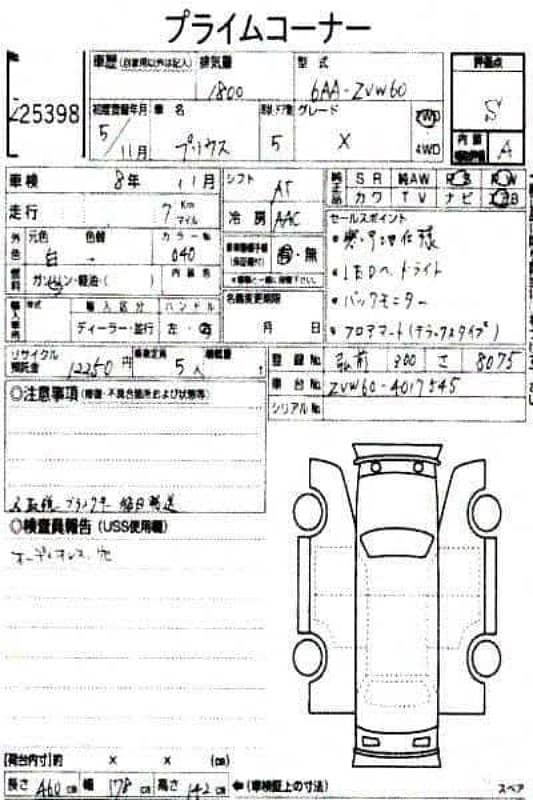 プライムコーナー
車歴 (自家用以外は記入) 排気量 型式 評価点
1800 6AA-ZVW60 S
25398
初度登録年月 車名 ドア数 グレード 2WD
5/11月 プリウス 5 X 4WD
内装 A
車検 8年 11月 シフト AT
純正品 SR 純AW PS PW
カワ TV ナビ エアB
走行 7 Km マイル 冷房 AAC
セールスポイント
外色 元色 色替 カラーNo.
白 → 040
有・無
・寒冷地仕様
・LEDヘッドライト
・バックモニター
・フロアマット(デラックスタイプ)
燃料 ガソリン・軽油・( ) 内装色
名義変更期限
月 日
輸入車 年式 輸入区分 ハンドル
ディーラー・並行 左・右
リサイクル預託金 12250円 乗車定員 5人 積載量 t
登録No. 弘前 300 さ 8075
車台No. ZVW60-4017545
シリアルNo.
◎注意事項 (修復・不具合箇所および状態等)
取説 後日発送
◎検査員報告 (USS使用欄)
オーディオレス穴
[荷台内寸]約 × × (cm)
長さ 460 cm 幅 178 cm 高さ 142 cm ←(車検証上の寸法)
スペア